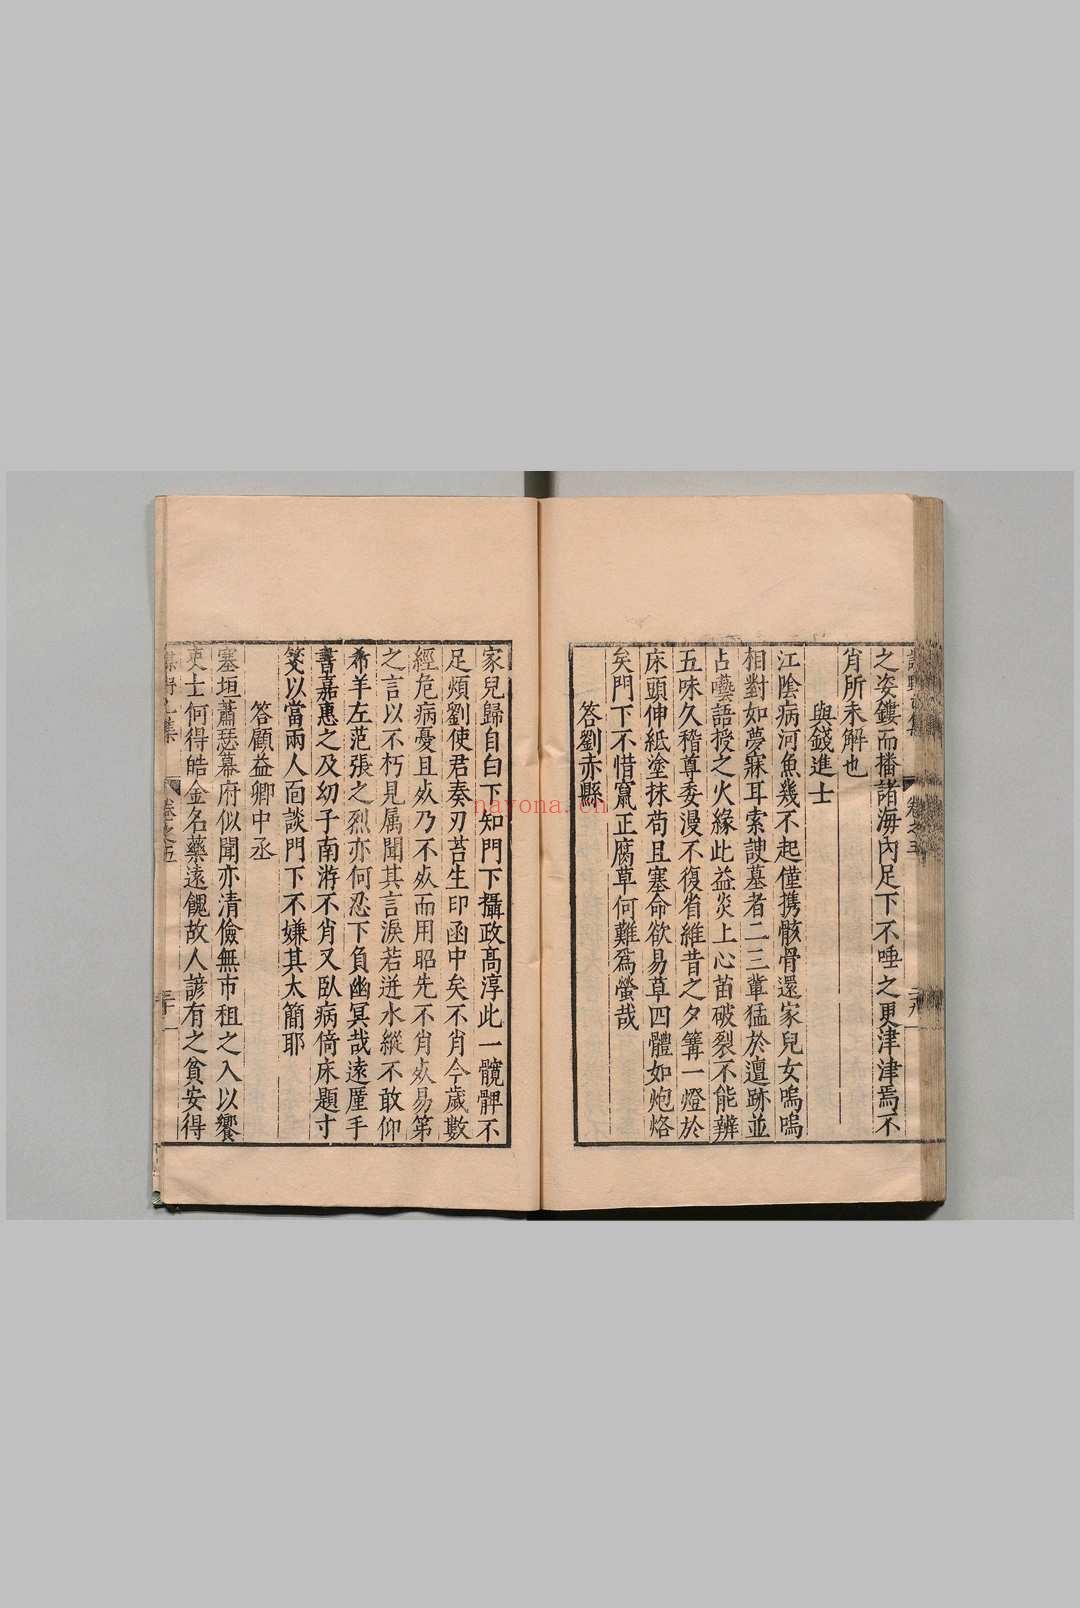 之姿鏤而播諸海內足下不唾之更津津焉不
肖所未解也
與錢進士
江陰病河魚幾不起僅携骸骨還家兒女嗚嗚
相對如夢寐耳索諛墓者二三輩猛於邅跡並
占囈語授之火緣此益炎上心苗破裂不能辨
五味久稽尊委漫不復省維昔之夕篝一燈於
床頭伸紙塗抹苟且塞命欲易草四體如炮烙
矣門下不惜竄正腐草何難爲螢哉
答劉赤縣
家兒歸自白下知門下攝政高淳此一髖髀不
足煩劉使君奏刃苔生印函中矣不肖今歲數
經危病憂且㱾乃不㱾而用昭先不肖㱾易第
之言以不朽見属聞其言淚若迸水縱不敢仰
希羊左范張之烈亦何忍下負幽冥哉遠厪手
書嘉惠之及幼子南游不肖又臥病倚床題寸
箋以當兩人面談門下不嫌其太簡耶
答顧益卿中丞
塞垣蕭瑟幕府似聞亦清儉無市租之入以饗
吏士何得皓金名藥遠餽故人諺有之貧安得
卷之五
三十
nayona.cn